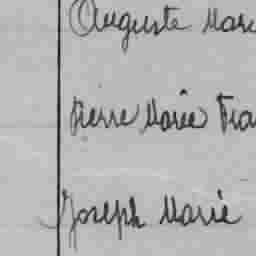 Auguste Marie
Pierre Marie Fra
Joseph Marie